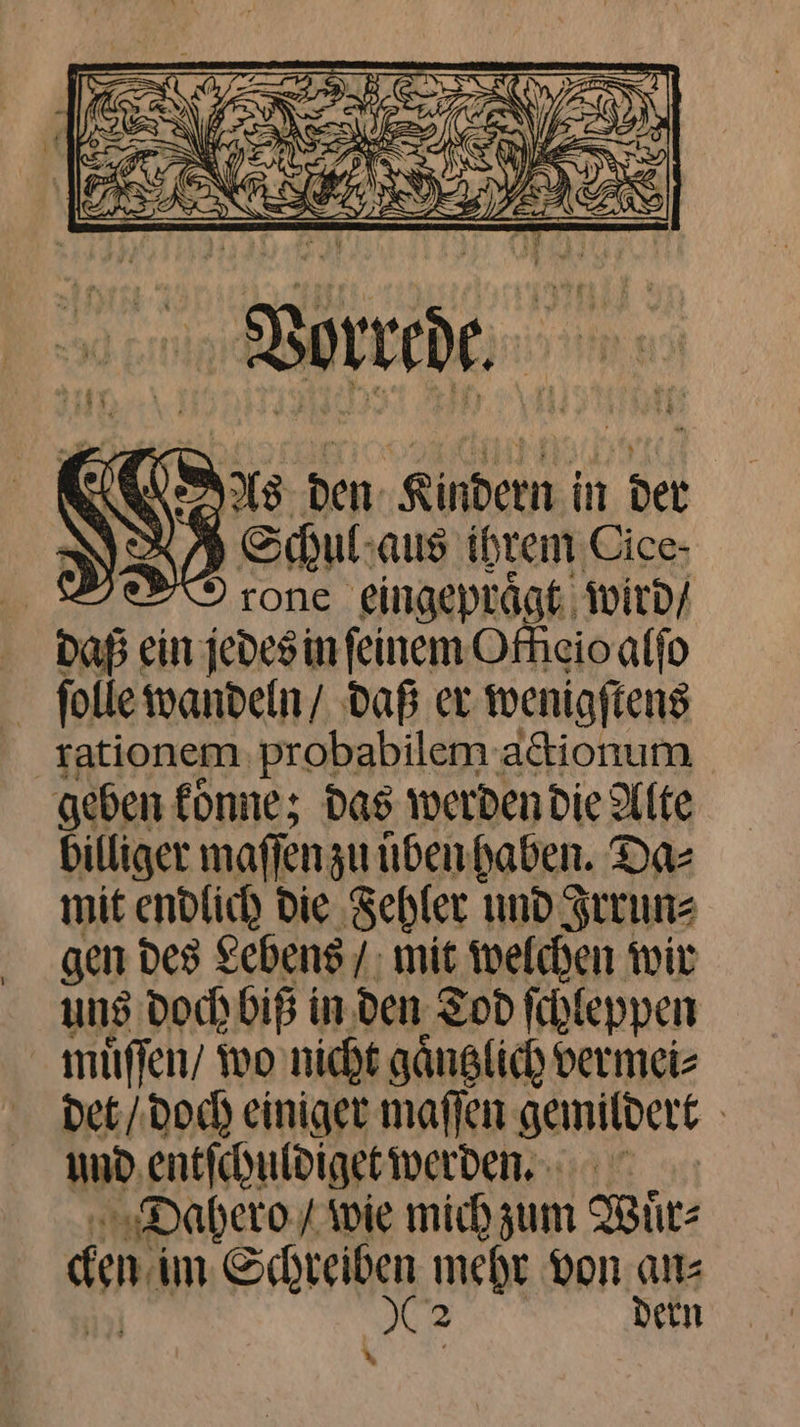 Vorrede.
WAs den Kindern in der
Schul aus ihrem Cice-
rone eingepraͤgt wird/
daß ein jedes in ſeinem Officio alſo
ſolle wandeln/ daß er wenigſtens
rationem probabilem actionum
geben koͤnne; das werden die Alte
billiger maſſen zu uͤben haben. Da⸗
mit endlich die Fehler und Irrun⸗
gen des Lebens / mit welchen wir
uns doch biß in den Tod ſchleppen
muͤſſen/ wo nicht gaͤntzlich vermei⸗
det / doch einiger maſſen gemildert
und entſchuldiget werden.
Dahero / wie mich zum Wuͤr⸗
cken im Schreiben mehr von an⸗
)( 2 dern